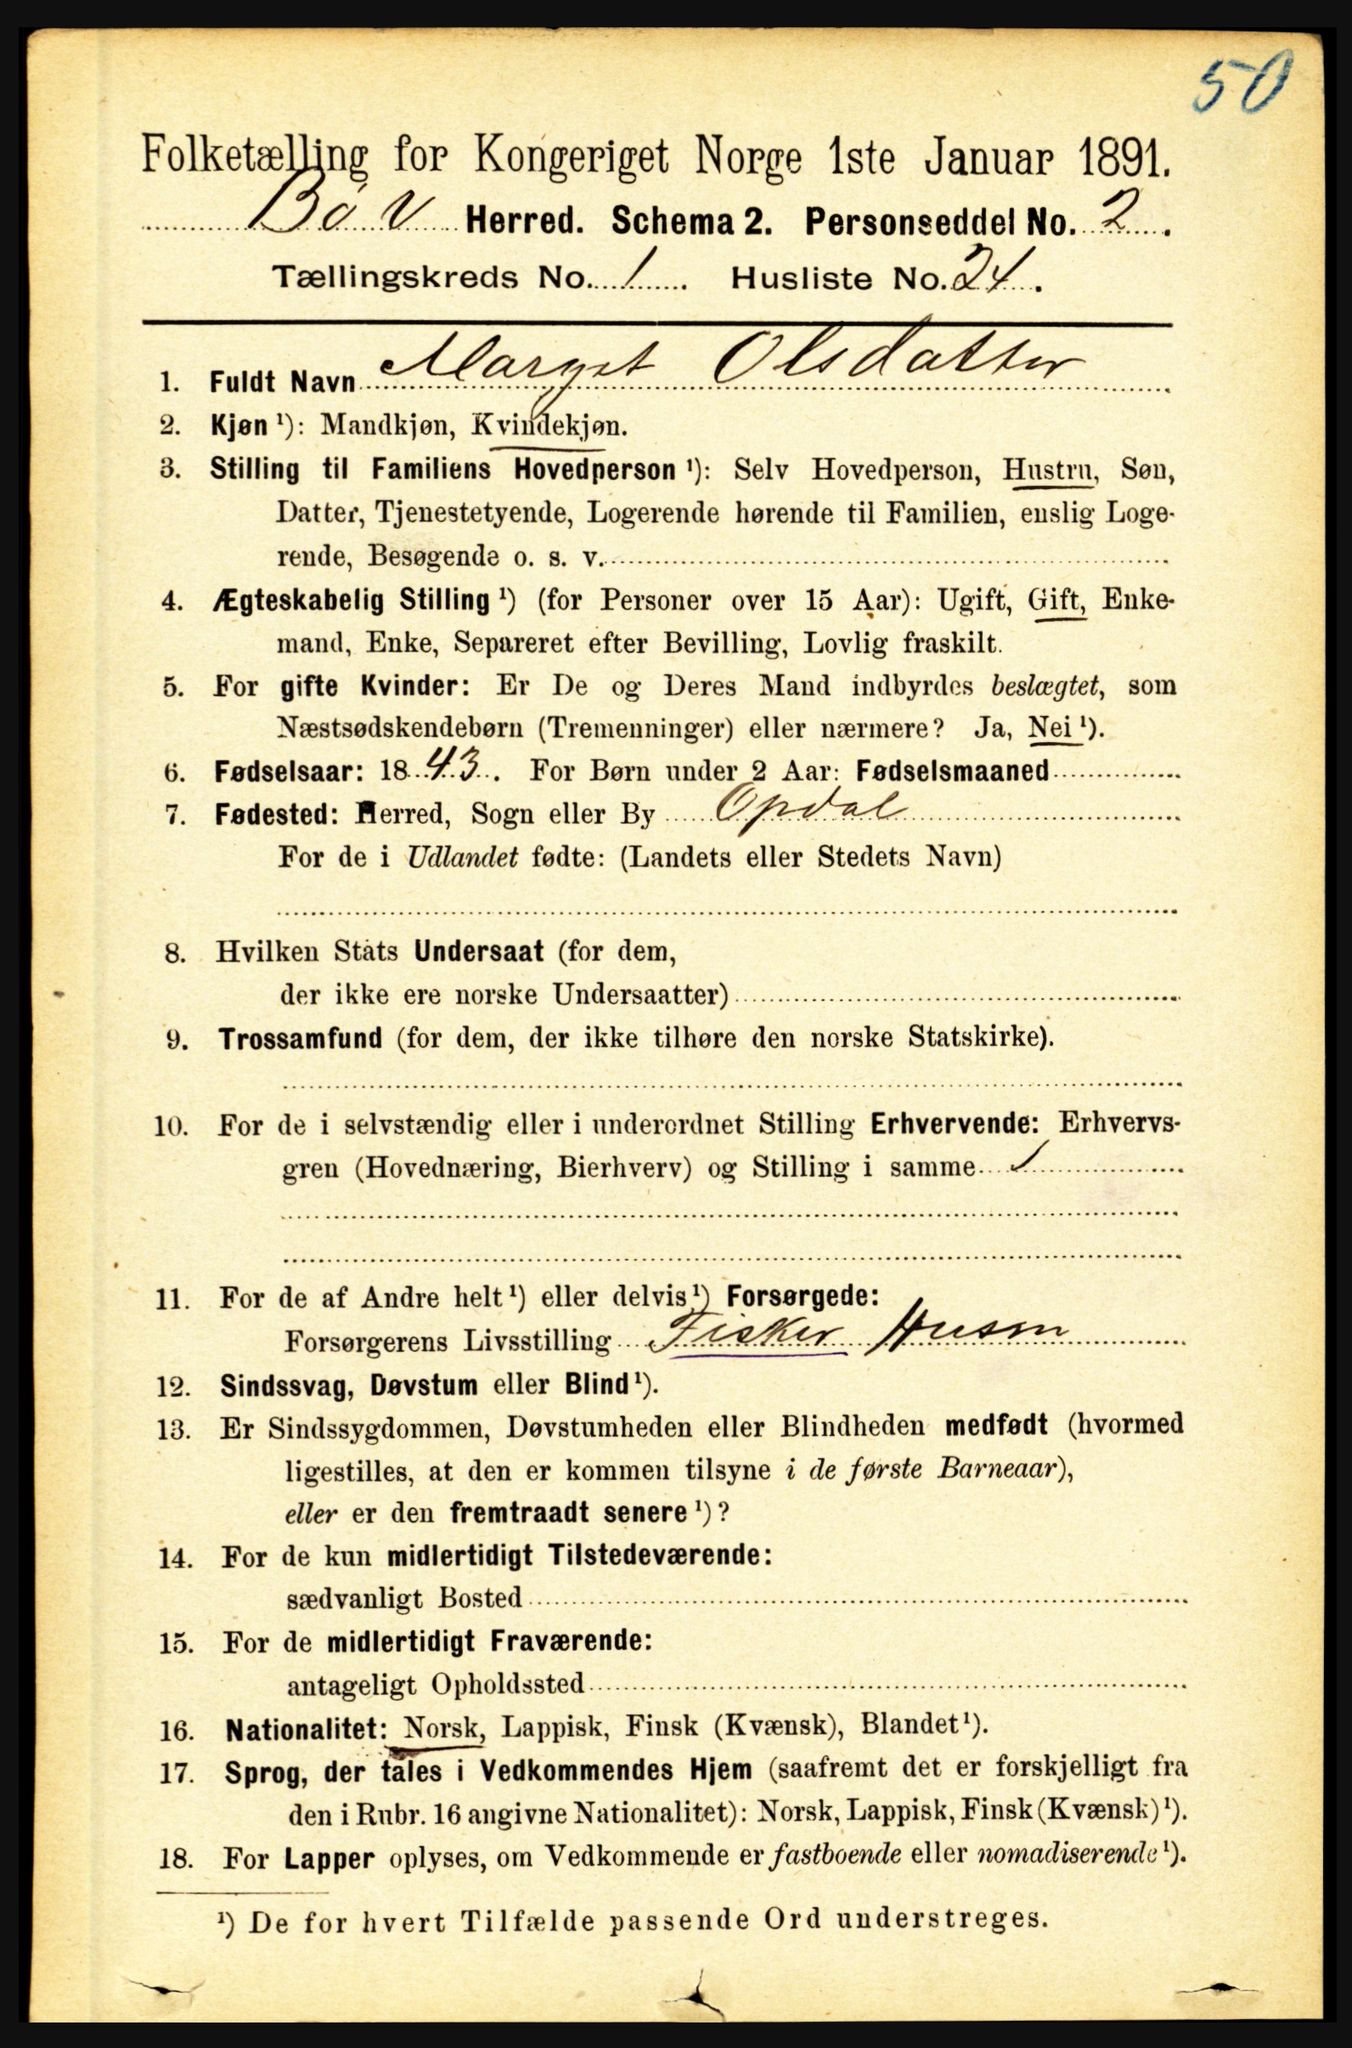 50
Folketælling for Kongeriget Norge 1ste Januar 1891.
Bøv Herred. Schema 2. Personseddel No. 2.
Tællingskreds No. 1. Husliste No. 24.
1. Fuldt Navn Marget Olsdatter
2. Kjøn ¹): Mandkjøn, Kvindekjøn.
3. Stilling til Familiens Hovedperson ¹): Selv Hovedperson, Hustru, Søn,
Datter, Tjenestetyende, Logerende hørende til Familien, enslig Loge-
rende, Besøgende o. s. v.
4. Ægteskabelig Stilling ¹) (for Personer over 15 Aar): Ugift, Gift, Enke-
mand, Enke, Separeret efter Bevilling, Lovlig fraskilt.
5. For gifte Kvinder: Er De og Deres Mand indbyrdes beslægtet, som
Næstsødskendebørn (Tremenninger) eller nærmere? Ja, Nei ¹).
6. Fødselsaar: 1843. For Børn under 2 Aar: Fødselsmaaned
7. Fødested: Herred, Sogn eller By Opdal
For de i Udlandet fødte: (Landets eller Stedets Navn)
8. Hvilken Stats Undersaat (for dem,
der ikke ere norske Undersaatter)
9. Trossamfund (for dem, der ikke tilhøre den norske Statskirke).
10. For de i selvstændig eller i underordnet Stilling Erhvervende: Erhvervs-
gren (Hovednæring, Bierhverv) og Stilling i samme
11. For de af Andre helt ¹) eller delvis ¹) Forsørgede:
Forsørgerens Livsstilling Fisker Husm
12. Sindssvag, Døvstum eller Blind ¹).
13. Er Sindssygdommen, Døvstumheden eller Blindheden medfødt (hvormed
ligestilles, at den er kommen tilsyne i de første Barneaar),
eller er den fremtraadt senere ¹)?
14. For de kun midlertidigt Tilstedeværende:
sædvanligt Bosted
15. For de midlertidigt Fraværende:
antageligt Opholdssted
16. Nationalitet: Norsk, Lappisk, Finsk (Kvænsk), Blandet ¹).
17. Sprog, der tales i Vedkommendes Hjem (saafremt det er forskjelligt fra
den i Rubr. 16 angivne Nationalitet): Norsk, Lappisk, Finsk (Kvænsk) ¹).
18. For Lapper oplyses, om Vedkommende er fastboende eller nomadiserende ¹).
¹) De for hvert Tilfælde passende Ord understreges.